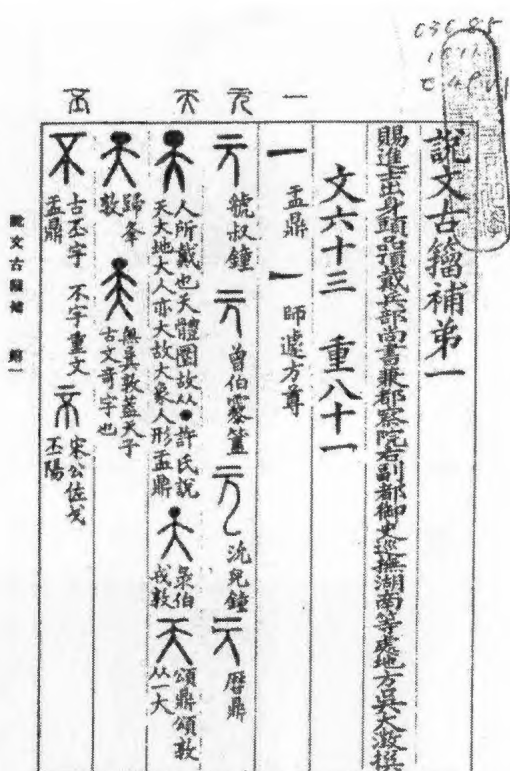 說文古籀補第一
賜進士出身頭品頂戴兵部尚書兼都察院右副都御史巡撫湖南等處地方吳大澂撰
文六十三 重八十一
一
一 盂鼎 一 師遽方尊
元
元 虢叔鐘 元 曾伯霥簠 元 沇兒鐘 元 厝鼎
天
天 人所戴也天體圜故从●許氏說天大地大人亦大故大象人形盂鼎 天 彔伯戎敦 天 頌鼎頌敦从一大
天 歸夆敦 天 無㠱敦蓋天子古文奇字也
丕
不 古丕字 不字重文 盂鼎 不 宋公佐戈 丕陽
說文古籀補